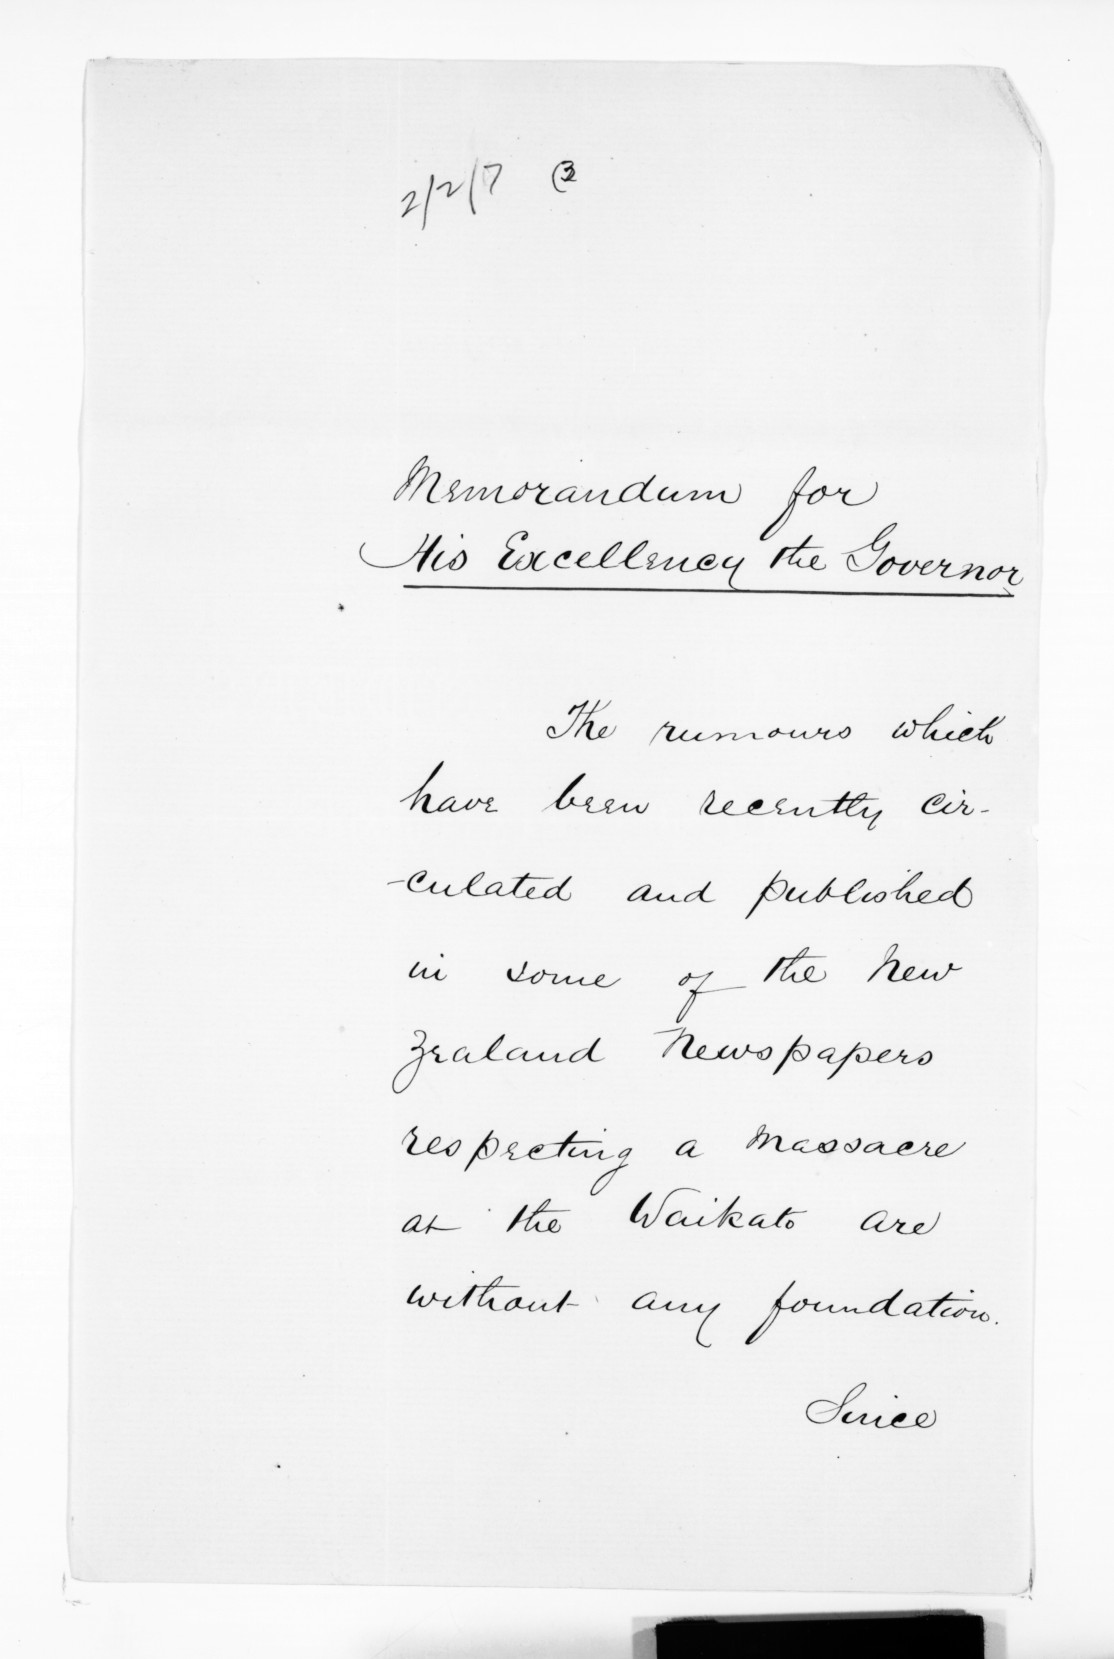 2/2/7 (3
Memorandum for
His Excellency the Governor
The rumours which
have been recently cir-
-culated and published
in some of the New
Zealand Newspapers
respecting a Massacre
at the Waikato are
without any foundation.
Since